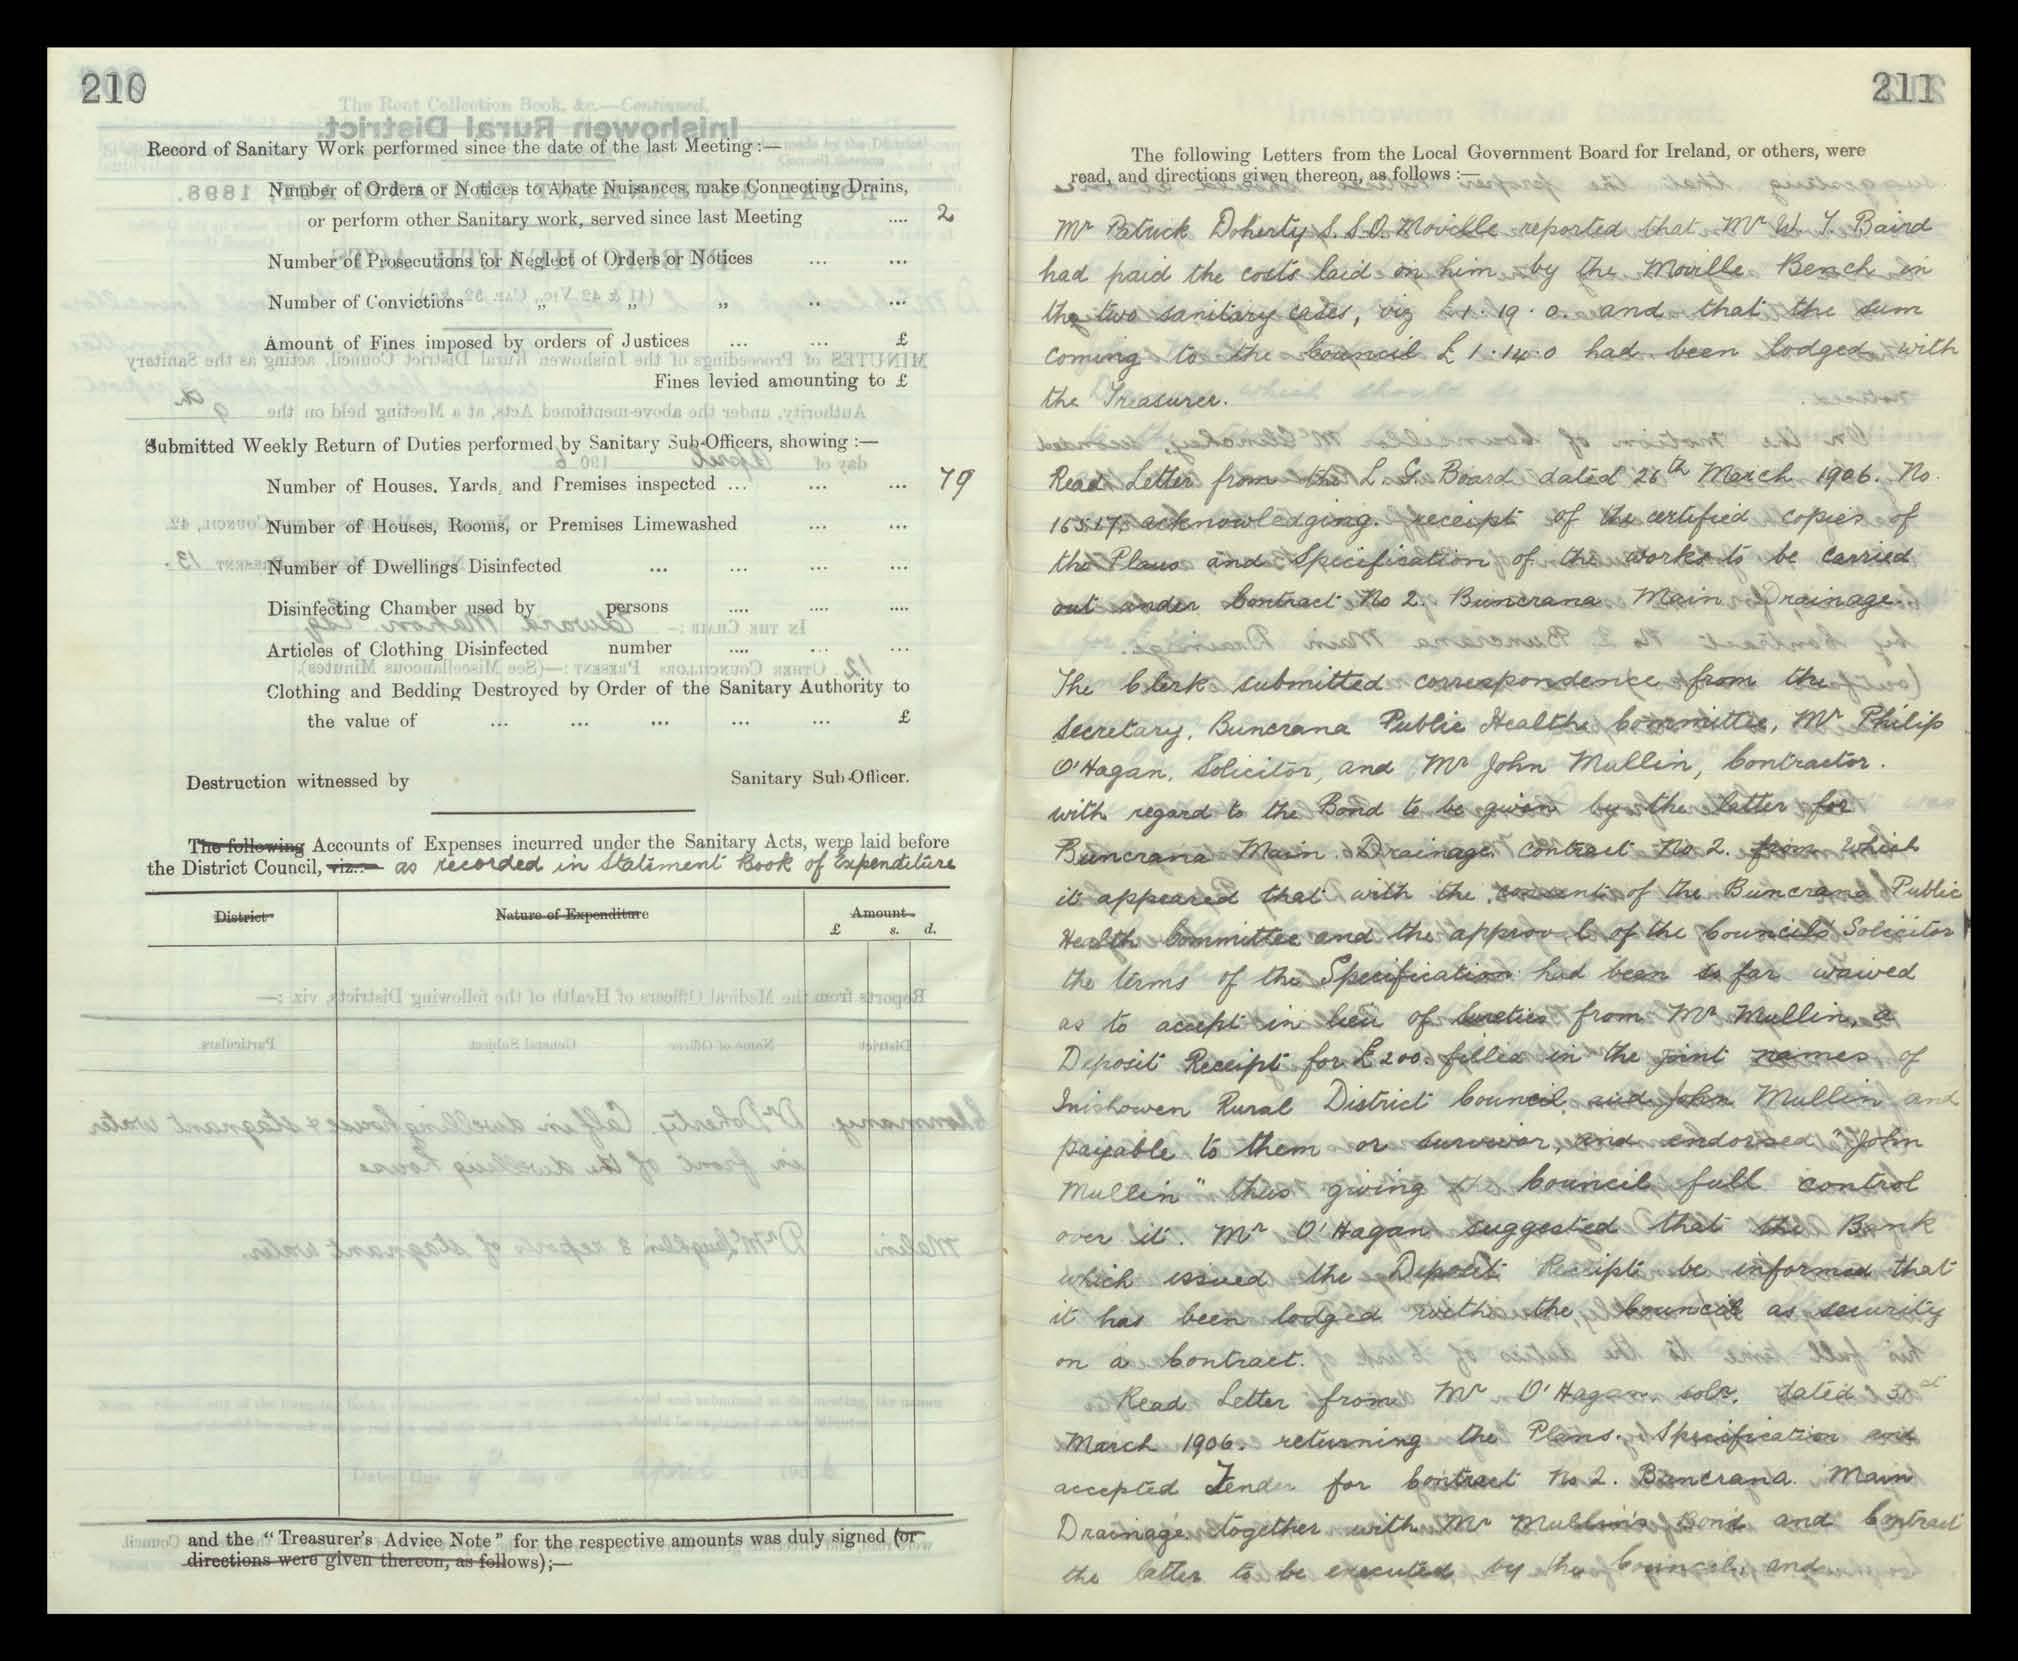 210
Record of Sanitary Work performed since the date of the last Meeting :—
Number of Orders or Notices to Abate Nuisances, make Connecting Drains,
or perform other Sanitary work, served since last Meeting .... 2
Number of Prosecutions for Neglect of Orders or Notices ... ...
Number of Convictions „ „ „ .. ...
Amount of Fines imposed by orders of Justices ... ... £
Fines levied amounting to £
Submitted Weekly Return of Duties performed by Sanitary Sub-Officers, showing :—
Number of Houses, Yards, and Premises inspected ... ... ... 79
Number of Houses, Rooms, or Premises Limewashed ... ...
Number of Dwellings Disinfected ... ... ... ...
Disinfecting Chamber used by persons .... .... ....
Articles of Clothing Disinfected number .... ... ...
Clothing and Bedding Destroyed by Order of the Sanitary Authority to
the value of ... ... ... ... ... £
Destruction witnessed by Sanitary Sub-Officer.
The following Accounts of Expenses incurred under the Sanitary Acts, were laid before
the District Council, viz.:— as recorded in Statement Book of Expenditure
District Nature of Expenditure Amount
£ s. d.
and the “Treasurer's Advice Note” for the respective amounts was duly signed (or
directions were given thereon, as follows);—
211
The following Letters from the Local Government Board for Ireland, or others, were
read, and directions given thereon, as follows :—
Mr Patrick Doherty S.S.O. Moville reported that Mr W. J. Baird
had paid the costs laid on him by the Moville Bench in
the two sanitary cases, viz £1.19.0. and that the sum
coming to the Council £1.14.0 had been lodged with
the Treasurer.
Read Letter from the L. G. Board dated 26th March 1906. No.
16517. acknowledging receipt of the certified copies of
the Plans and Specification of the works to be carried
out under Contract No 2. Buncrana Main Drainage.
The Clerk submitted correspondence from the
Secretary, Buncrana Public Health Committee, Mr Philip
O'Hagan, Solicitor, and Mr John Mullin, Contractor.
with regard to the Bond to be given by the latter for
Buncrana Main Drainage contract No 2. from which
it appeared that with the consent of the Buncrana Public
Health Committee and the approval of the Councils Solicitor
the terms of the Specification had been so far waived
as to accept in lieu of sureties from Mr Mullin, a
Deposit Receipt for £200. filled in the joint names of
Inishowen Rural District Council, and John Mullin and
payable to them or survivor, and endorsed "John
Mullin" thus giving the Council full control
over it. Mr O'Hagan suggested that the Bank
which issued the Deposit Receipt be informed that
it has been lodged with the Council as security
on a Contract.
Read Letter from Mr O'Hagan, solr. dated
March 1906. returning the Plans. Specification and
accepted Tender for Contract No 2. Buncrana Main
Drainage together with Mr Mullin's Bond and Contract
the latter to be executed by the Council, and